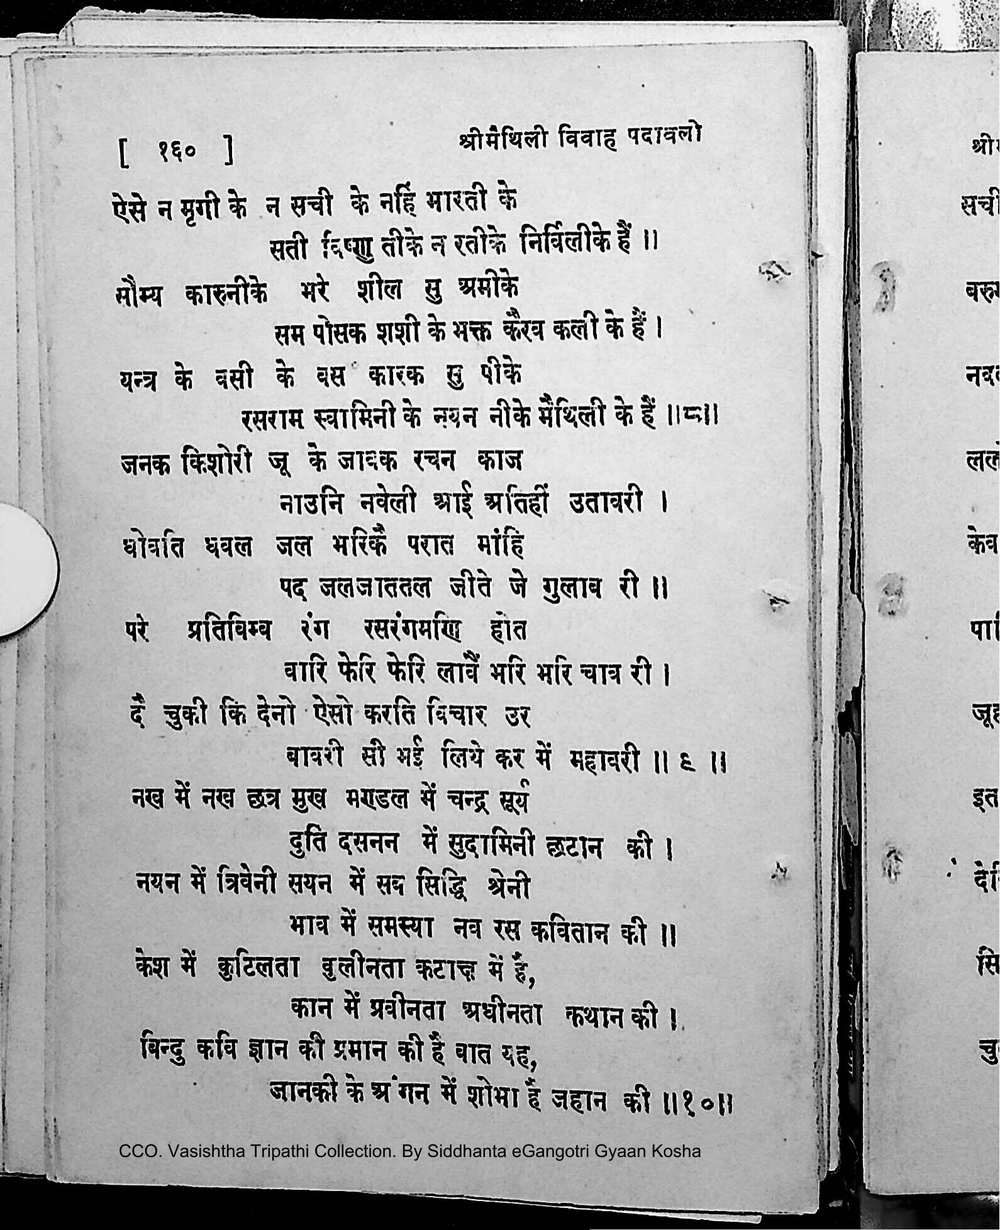 [ १६० ] श्रीमैथिली विवाह पदावली
ऐसे न मृगी के न सची के नहिं भारती के
सती विष्णु तीके न रतीके निर्विलीके हैं ।।
सौम्य कारुनीके भरे शील सु अमीके
सम पोसक शशी के भक्त कैरव कली के हैं ।
यन्त्र के वसी के वस कारक सु पीके
रसराम स्वामिनी के नयन नीके मैथिली के हैं ।।८।।
जनक किशोरी जू के जावक रचन काज
नाउनि नवेली आई अतिहीं उतावरी ।
धोवति धवल जल भरिकै परात मांहि
पद जलजाततल जीते जे गुलाब री ।।
परे प्रतिविम्व रंग रसरंगमणि होत
वारि फेरि फेरि लावैं भरि भरि चाव री ।
दै चुकी कि देनो ऐसो करति विचार उर
वावरी सी भई लिये कर में महावरी ।। ६ ।।
नख में नख छत्र मुख मण्डल में चन्द्र सूर्य
दुति दसनन में सुदामिनी छटान की ।
नयन में त्रिवेनी सयन में सव सिद्धि श्रेनी
भाव में समस्या नव रस कवितान की ।।
केश में कुटिलता कुलीनता कटाक्ष में है,
कान में प्रवीनता अधीनता कथान की ।
विन्दु कवि ज्ञान की प्रमान की है वात यह,
जानकी के अंगन में शोभा है जहान की ।।१०।।
CCO. Vasishtha Tripathi Collection. By Siddhanta eGangotri Gyaan Kosha
सची
केव